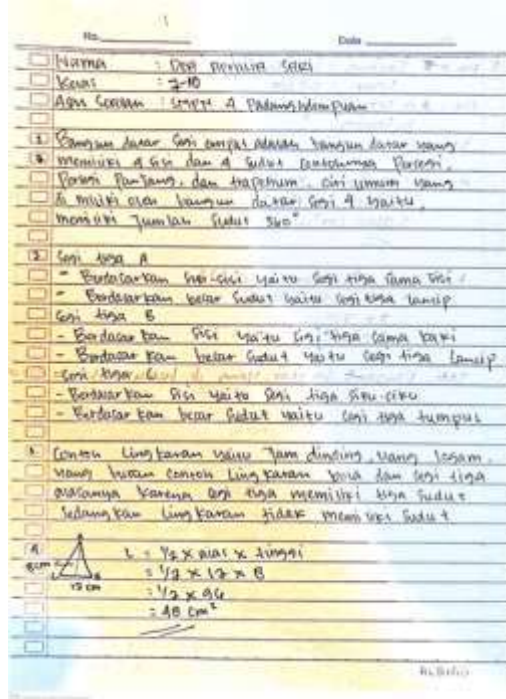 No.
Date
Nama :
Kelas : 7-10
: 4 Padangsidempuan
1 Bangun datar segi empat adalah bangun datar yang
memiliki 4 sisi dan 4 sudut contohnya Persegi,
Persegi Panjang, dan trapesium. ciri umum yang
di miliki oleh bangun datar segi 4 yaitu,
memiliki Jumlah Sudut 360°
2 Segi tiga A
- Berdasarkan sisi-sisi yaitu segi tiga sama sisi
- Berdasarkan besar sudut yaitu segi tiga lancip
Segi tiga B
- Berdasarkan sisi yaitu segi tiga sama kaki
- Berdasarkan besar sudut yaitu segi tiga lancip
- Segi tiga C
- Berdasarkan sisi yaitu segi tiga siku-siku
- Berdasarkan besar sudut yaitu segi tiga tumpul
3 Contoh Lingkaran yaitu Jam dinding, uang logam,
yang bukan contoh Lingkaran bola dan segi tiga
alasannya karena segi tiga memiliki tiga sudut
sedangkan Lingkaran tidak memiliki sudut
4 L = 1/2 x alas x tinggi
8 cm = 1/2 x 12 x 8
12 cm = 1/2 x 96
= 48 cm²